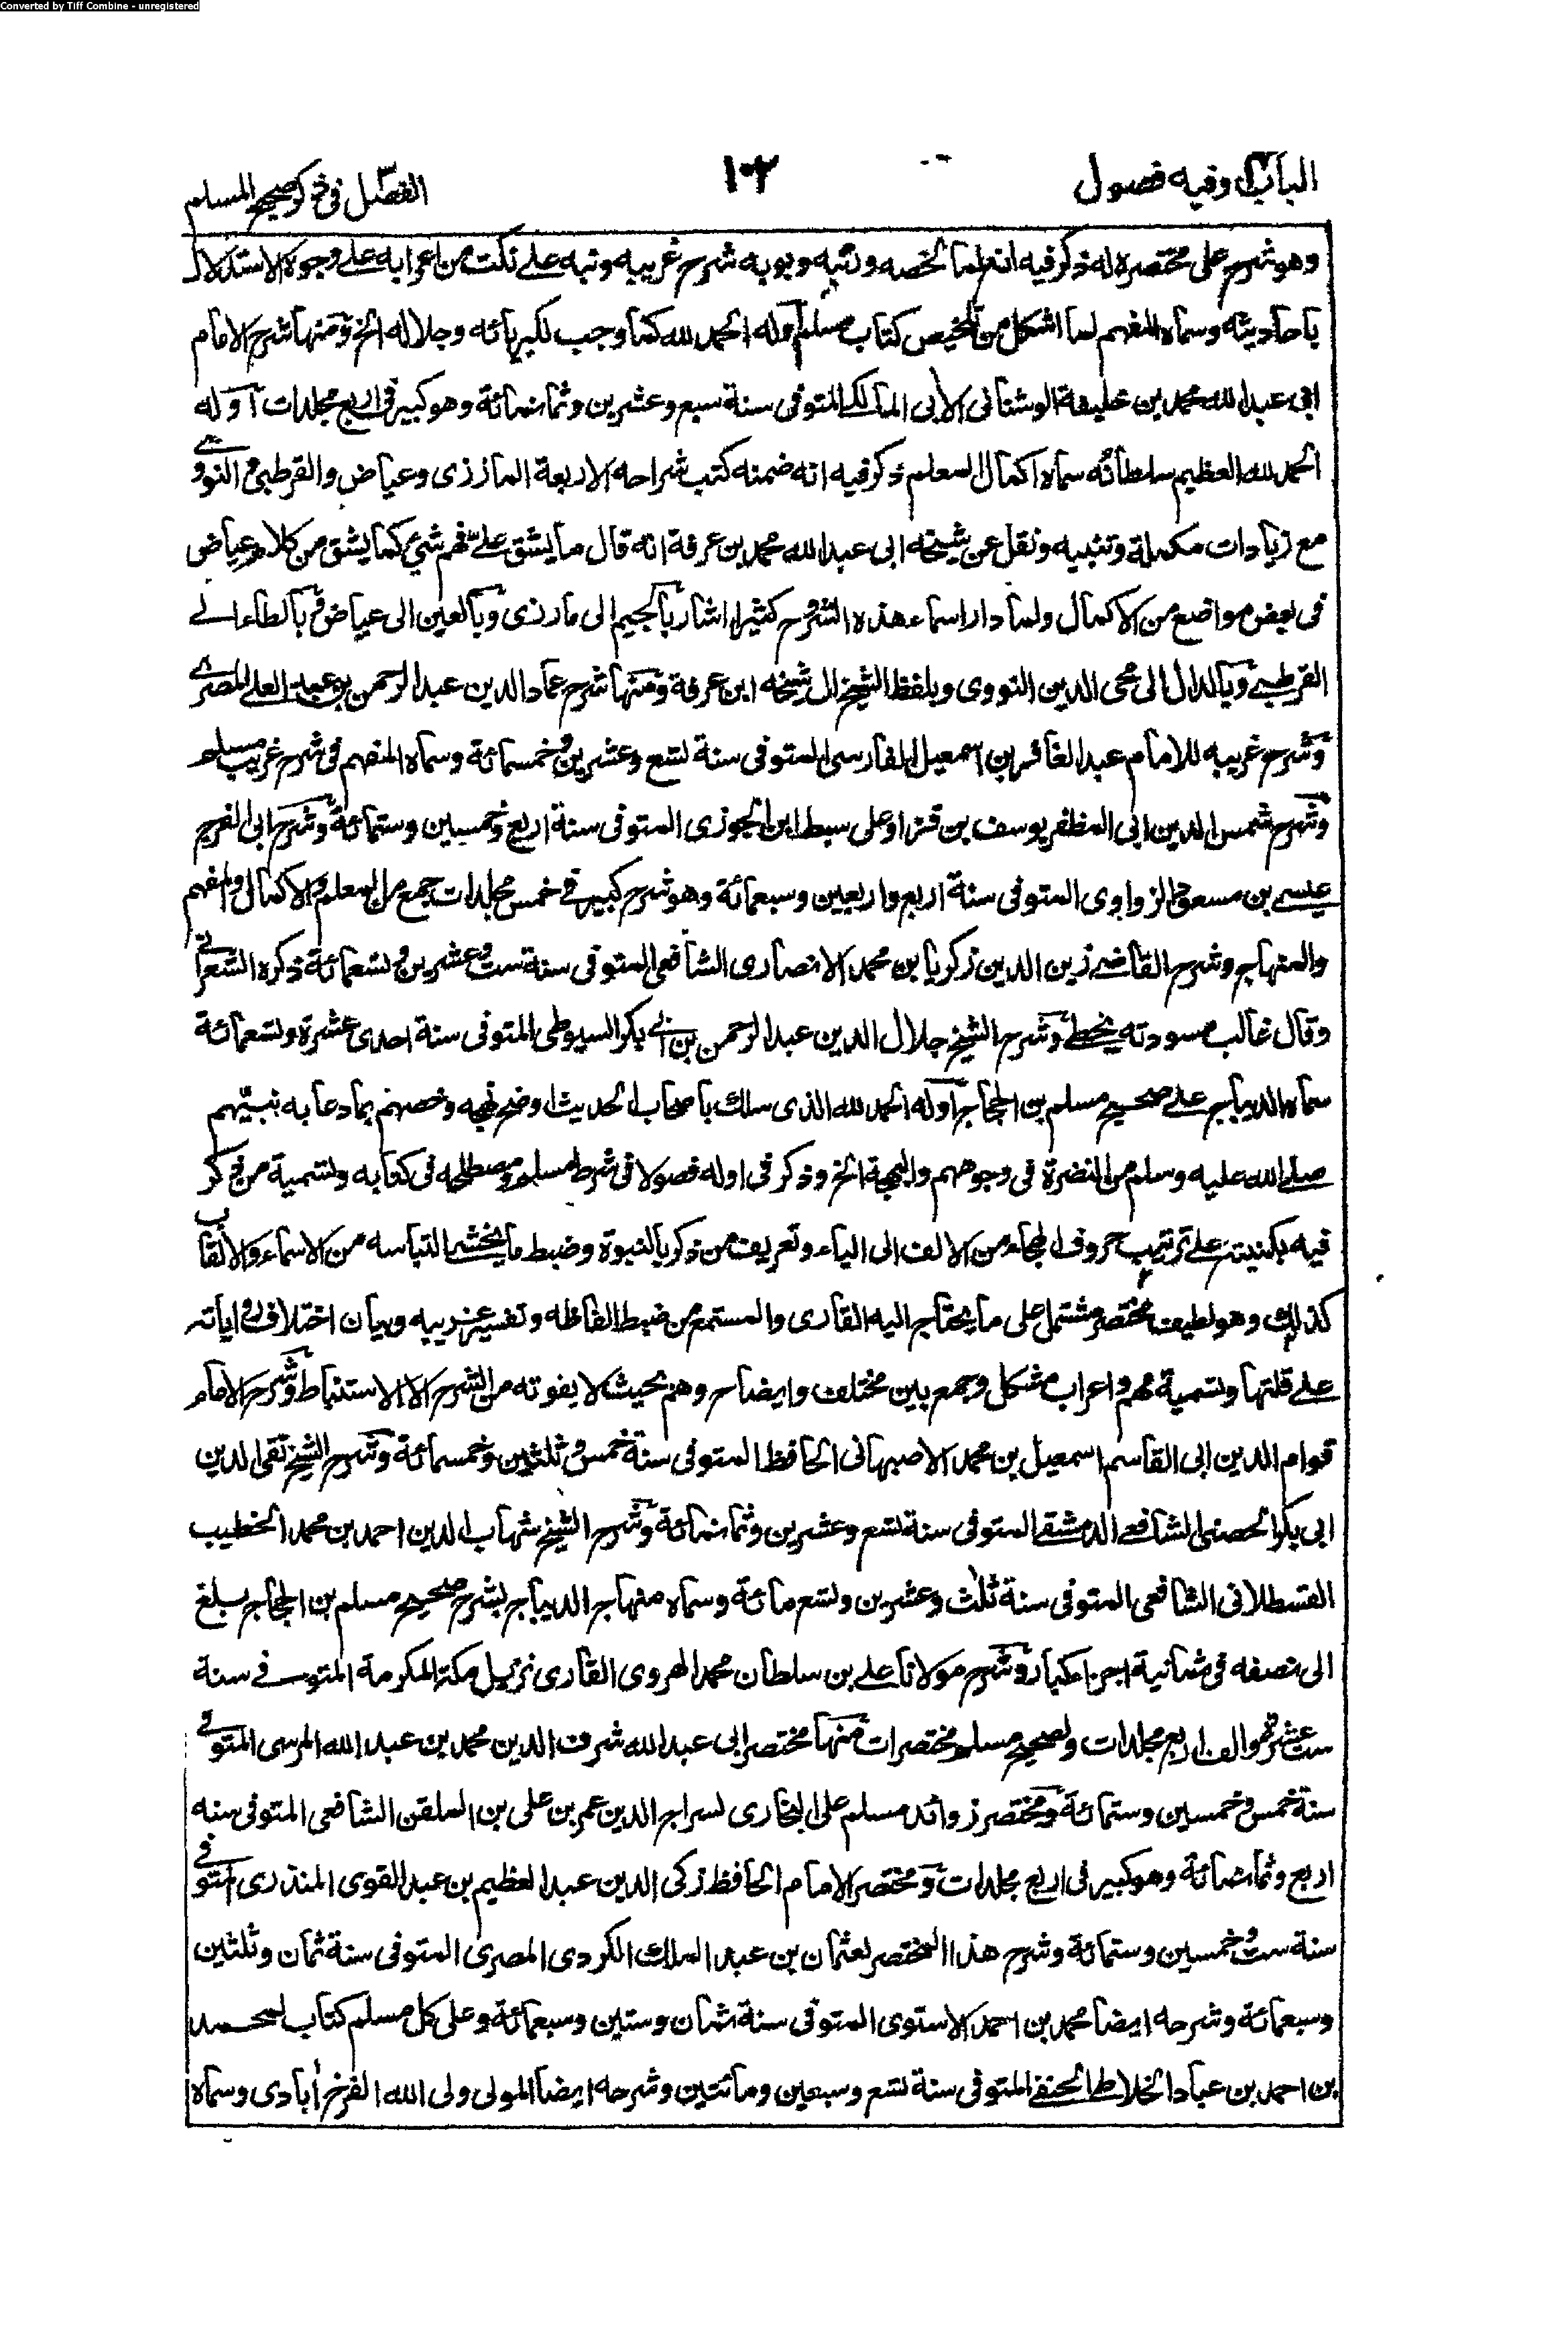 Converted by Tiff Combine - unregistered
الباب وفيه فصول
١٠٢
الفصل فى ذكر صحيح المسلم
وهو شرح على مختصره له ذكر فيه انه لما لخصه ورتبه وبوبه شرح غريبه ونبه على نكت من اعرابه على وجوه الاستدلال
باحاديثه وسماه المفهم لما اشكل من تلخيص كتاب مسلم اوله الحمد لله كما وجب لكبريائه وجلاله الخ ومنها شرح الامام
ابى عبد الله محمد بن خليفة الوشتانى الابى المالكى المتوفى سنة سبع وعشرين وثمانمائة وهو كبير فى اربع مجلدات اوله
الحمد لله العظيم سلطانه سماه اكمال المعلم ذكر فيه انه ضمنه كتب شراحه الاربعة المازرى وعياض والقرطبى والنووى
مع زيادات مكملة وتنبيه ونقل عن شيخه ابى عبد الله محمد بن عرفة انه قال ما يشق على فهم شئ كما يشق من كلام عياض
فى بعض مواضع من الاكمال ولما دار اسماء هذه الشروح كثيرا اشار بالجيم الى مارزى وبالعين الى عياض وبالطاء الى
القرطبى وبالدال الى محى الدين النووى وبلفظ الشيخ الى شيخه ابن عرفة ومنها شرح عماد الدين عبد الرحمن بن عبد العلى المصرى
وشرح غريبه للامام عبد الغافر بن اسمعيل الفارسى المتوفى سنة تسع وعشرين وخمسمائة وسماه المفهم فى شرح غريب مسلم
وشرح شمس الدين ابى المظفر يوسف بن قزاوعلى سبط ابن الجوزى المتوفى سنة اربع وخمسين وستمائة وشرح ابى الفرج
عيسى بن مسعود الزواوى المتوفى سنة اربع واربعين وسبعمائة وهو شرح كبير فى خمس مجلدات جمع من المعلم والاكمال والمفهم
والمنهاج وشرح القاضى زين الدين زكريا بن محمد الانصارى الشافعى المتوفى سنة ست وعشرين وتسعمائة ذكره الشعرانى
وقال غالب مسودته بخطى وشرح الشيخ جلال الدين عبد الرحمن بن ابى بكر السيوطى المتوفى سنة احدى عشرة وتسعمائة
سماه الديباج على صحيح مسلم بن الحجاج اوله الحمد لله الذى سلك باصحاب الحديث اوضح نهجه وخصهم بما دعا به نبيهم
صلى الله عليه وسلم من النضرة فى وجوههم والبهجة الخ وذكر فى اوله فصولا فى شرط مسلم ومصطلحه فى كتابه وتسمية من ذكر
فيه بكنيته على ترتيب حروف الهجاء من الالف الى الياء وتعريف من ذكر بالنبوة وضبط ما يخشى التباسه من الاسماء والالقاب
كذلك وهو لطيف مختصر مشتمل على ما يحتاج اليه القارى والمستمع من ضبط الفاظه وتفسير غريبه وبيان اختلاف رواياته
على قلتها وتسمية مبهم واعراب مشكل وجمع بين مختلف وايضاح وهم بحيث لا يفوته من الشرح الا الاستنباط وشرح الامام
قوام الدين ابى القاسم اسمعيل بن محمد الاصبهانى الحافظ المتوفى سنة خمس وثلثين وخمسمائة وشرح الشيخ تقى الدين
ابى بكر الحصنى الشافعى الدمشقى المتوفى سنة تسع وعشرين وثمانمائة وشرح الشيخ شهاب الدين احمد بن محمد الخطيب
القسطلانى الشافعى المتوفى سنة ثلث وعشرين وتسع مائة وسماه منهاج الديباج بشرح صحيح مسلم بن الحجاج بلغ
الى نصفه فى ثمانية اجزاء كبار وشرح مولانا على بن سلطان محمد الهروى القارى نزيل مكة المكرمة المتوفى سنة
ست عشرة والف اربع مجلدات ولصحيح مسلم مختصرات منها مختصر ابى عبد الله شرف الدين محمد بن عبد الله المرسى المتوفى
سنة خمس وخمسين وستمائة ومختصر زوائد مسلم على البخارى لسراج الدين عمر بن على بن الملقن الشافعى المتوفى سنه
اربع وثمانمائة وهو كبير فى اربع مجلدات ومختصر الامام الحافظ زكى الدين عبد العظيم بن عبد القوى المنذرى المتوفى
سنة ست وخمسين وستمائة وشرح هذا المختصر لعثمان بن عبد الملك الكردى المصرى المتوفى سنة ثمان وثلثين
وسبعمائة وشرحه ايضا محمد بن احمد الاسنوى المتوفى سنة ثمان وستين وسبعمائة وعلى كل مسلم كتاب لمحمد
بن احمد بن عباد الخلاطى الحنفى المتوفى سنة تسع وسبعين ومائتين وشرحه ايضا المولى ولى الله الفرخ أبادى وسماه